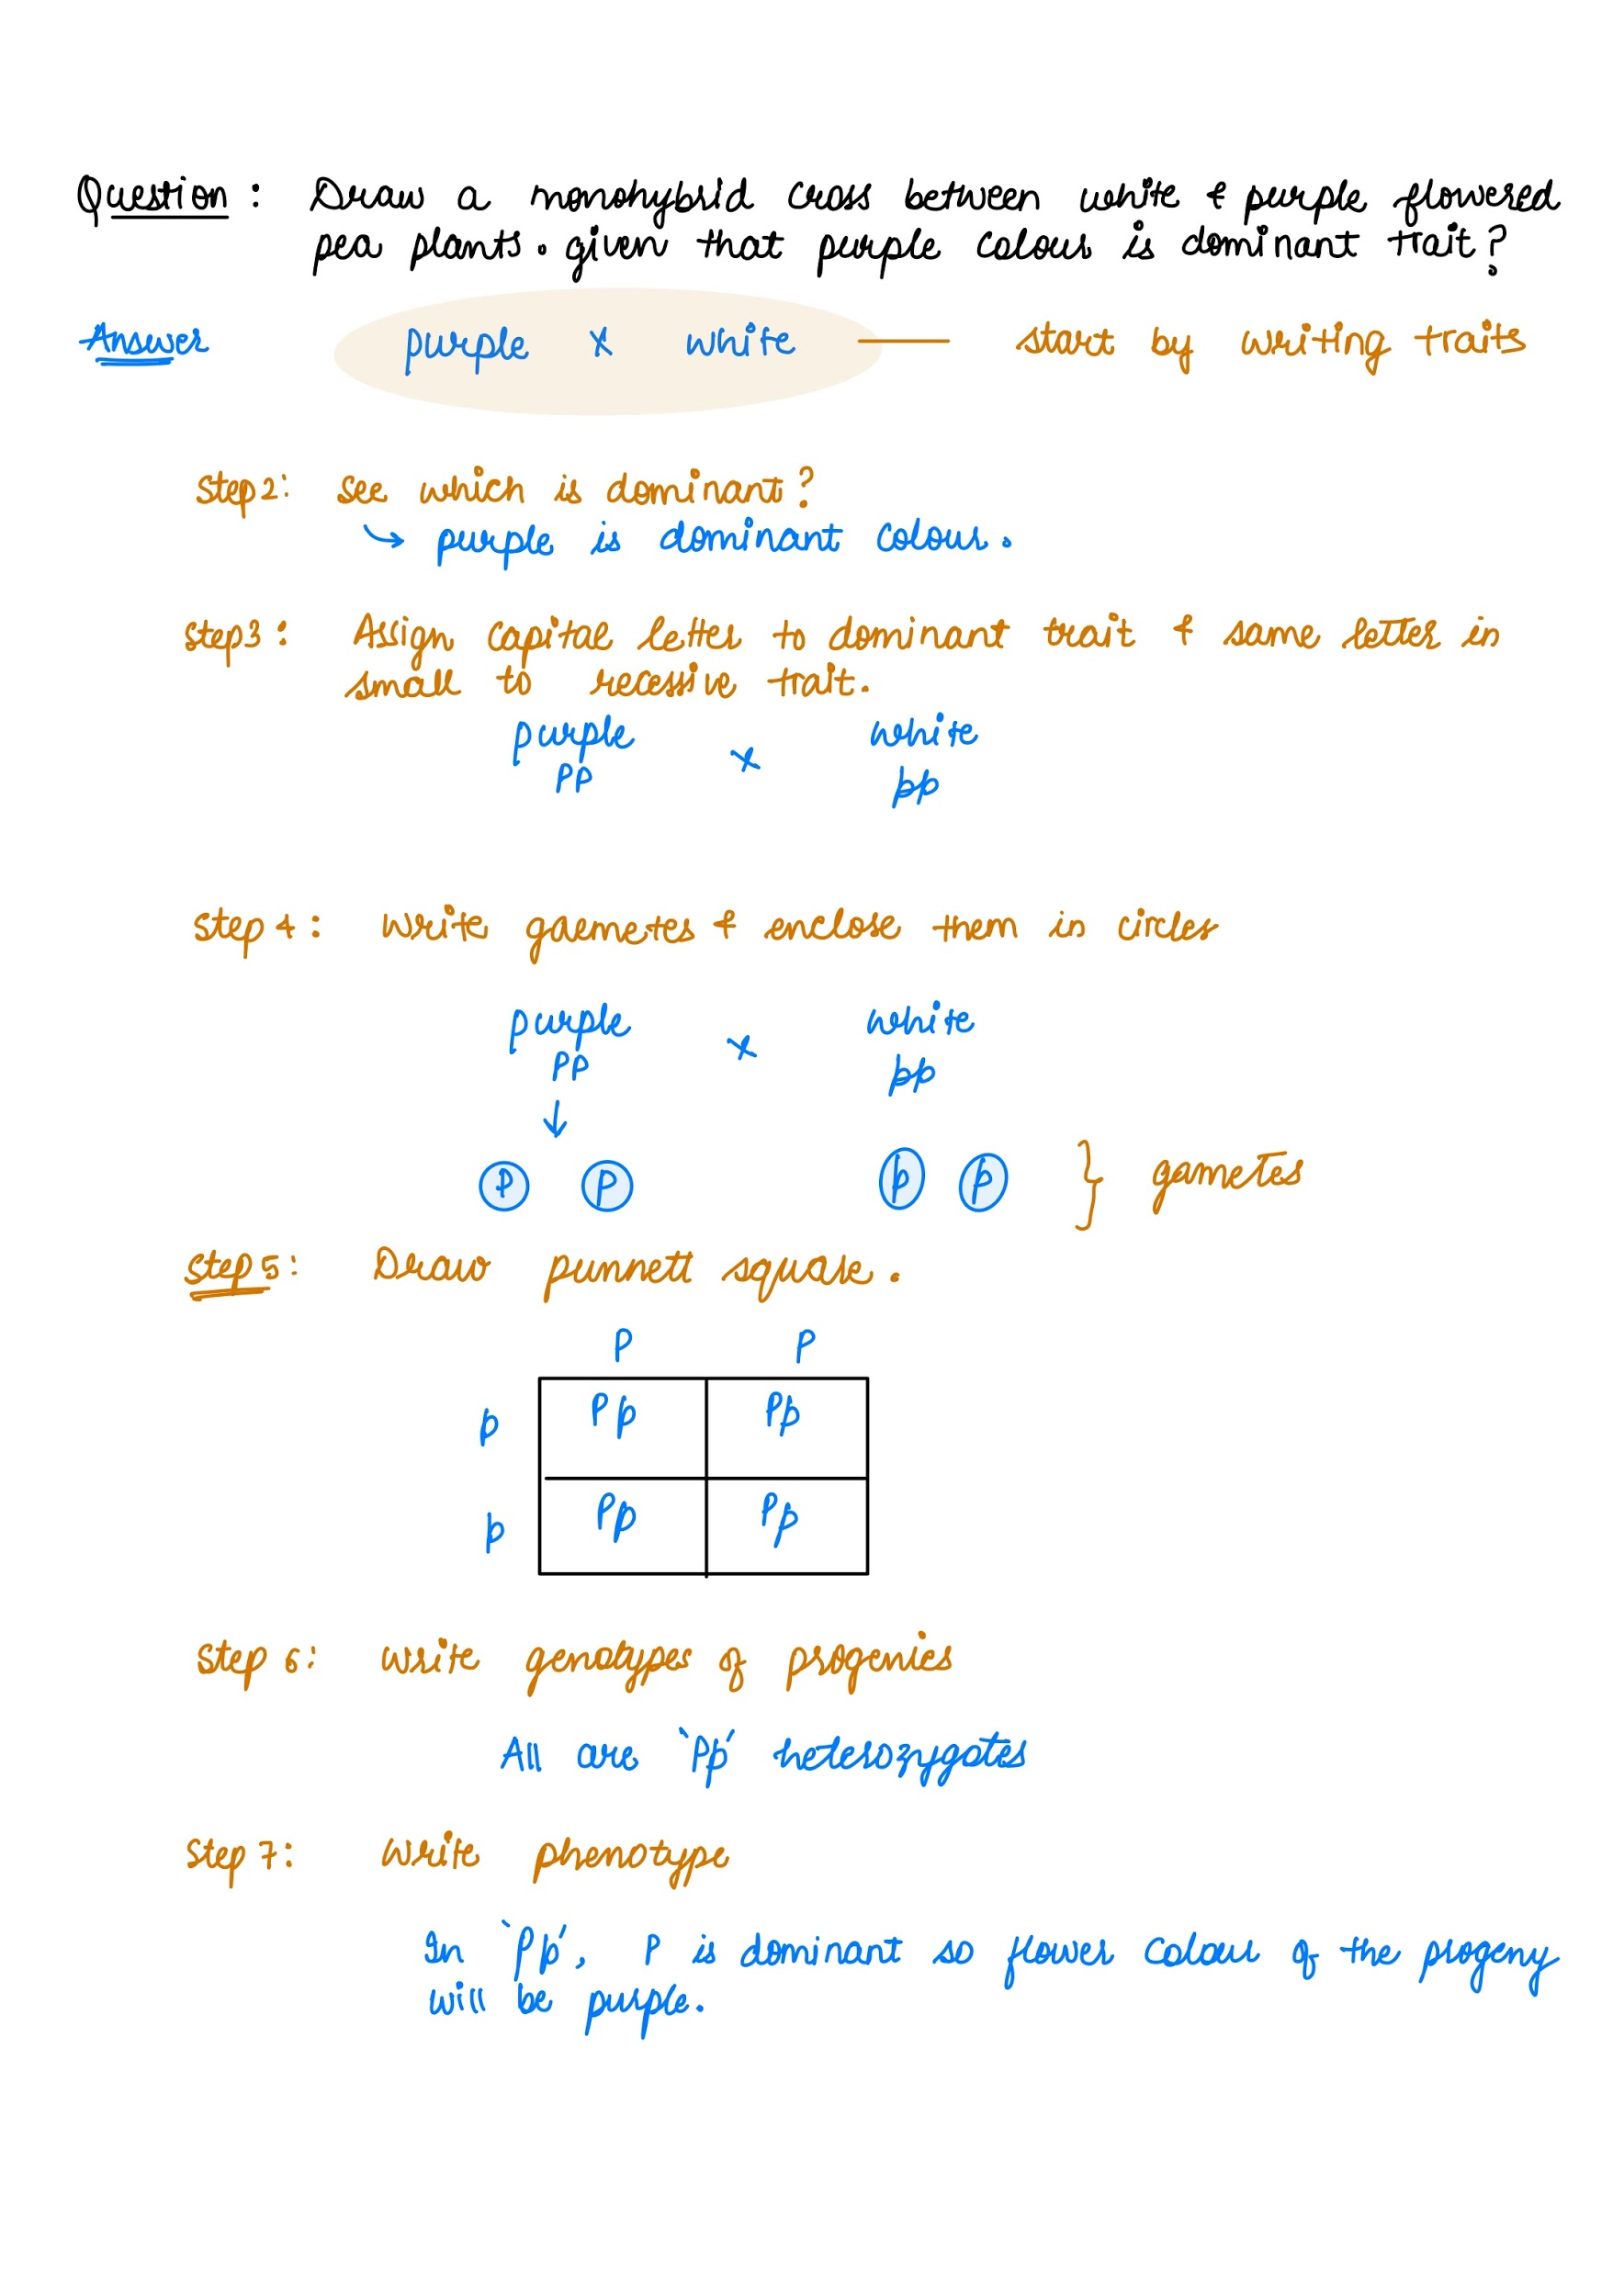 Question : Draw a monohybrid cross between white & purple flowered
pea plants. given that purple colour is dominant trait?
Answer purple x white — start by writing traits
Step2: see which is dominant?
↳ purple is dominant colour.
Step3: Assign capital letter to dominant trait & same letter in
small to recessive trait.
purple x white
PP pp
Step 4: write gaemetes & enclose them in circles
purple x white
PP pp
↓
P P p p } gametes
Step5: Draw punnett square.
P P
p Pp Pp
p Pp Pp
Step 6: write genotypes of progenies
All are 'Pp' heterozygotes
Step 7: Write phenotype
In 'Pp', P is dominant so flower colour of the progeny
will be purple.